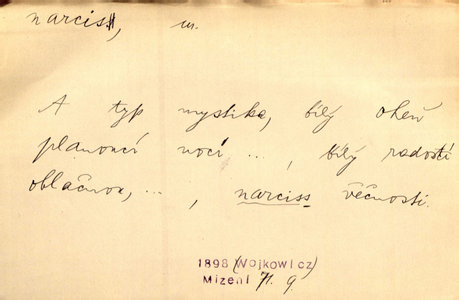 narciss, m.
A typ mystika, bílý oheň
planoucí nocí ..., bílý radostí
oblačnou, ... , narciss věčnosti.
1898 (Wojkowicz)
Mizení 71. 9.